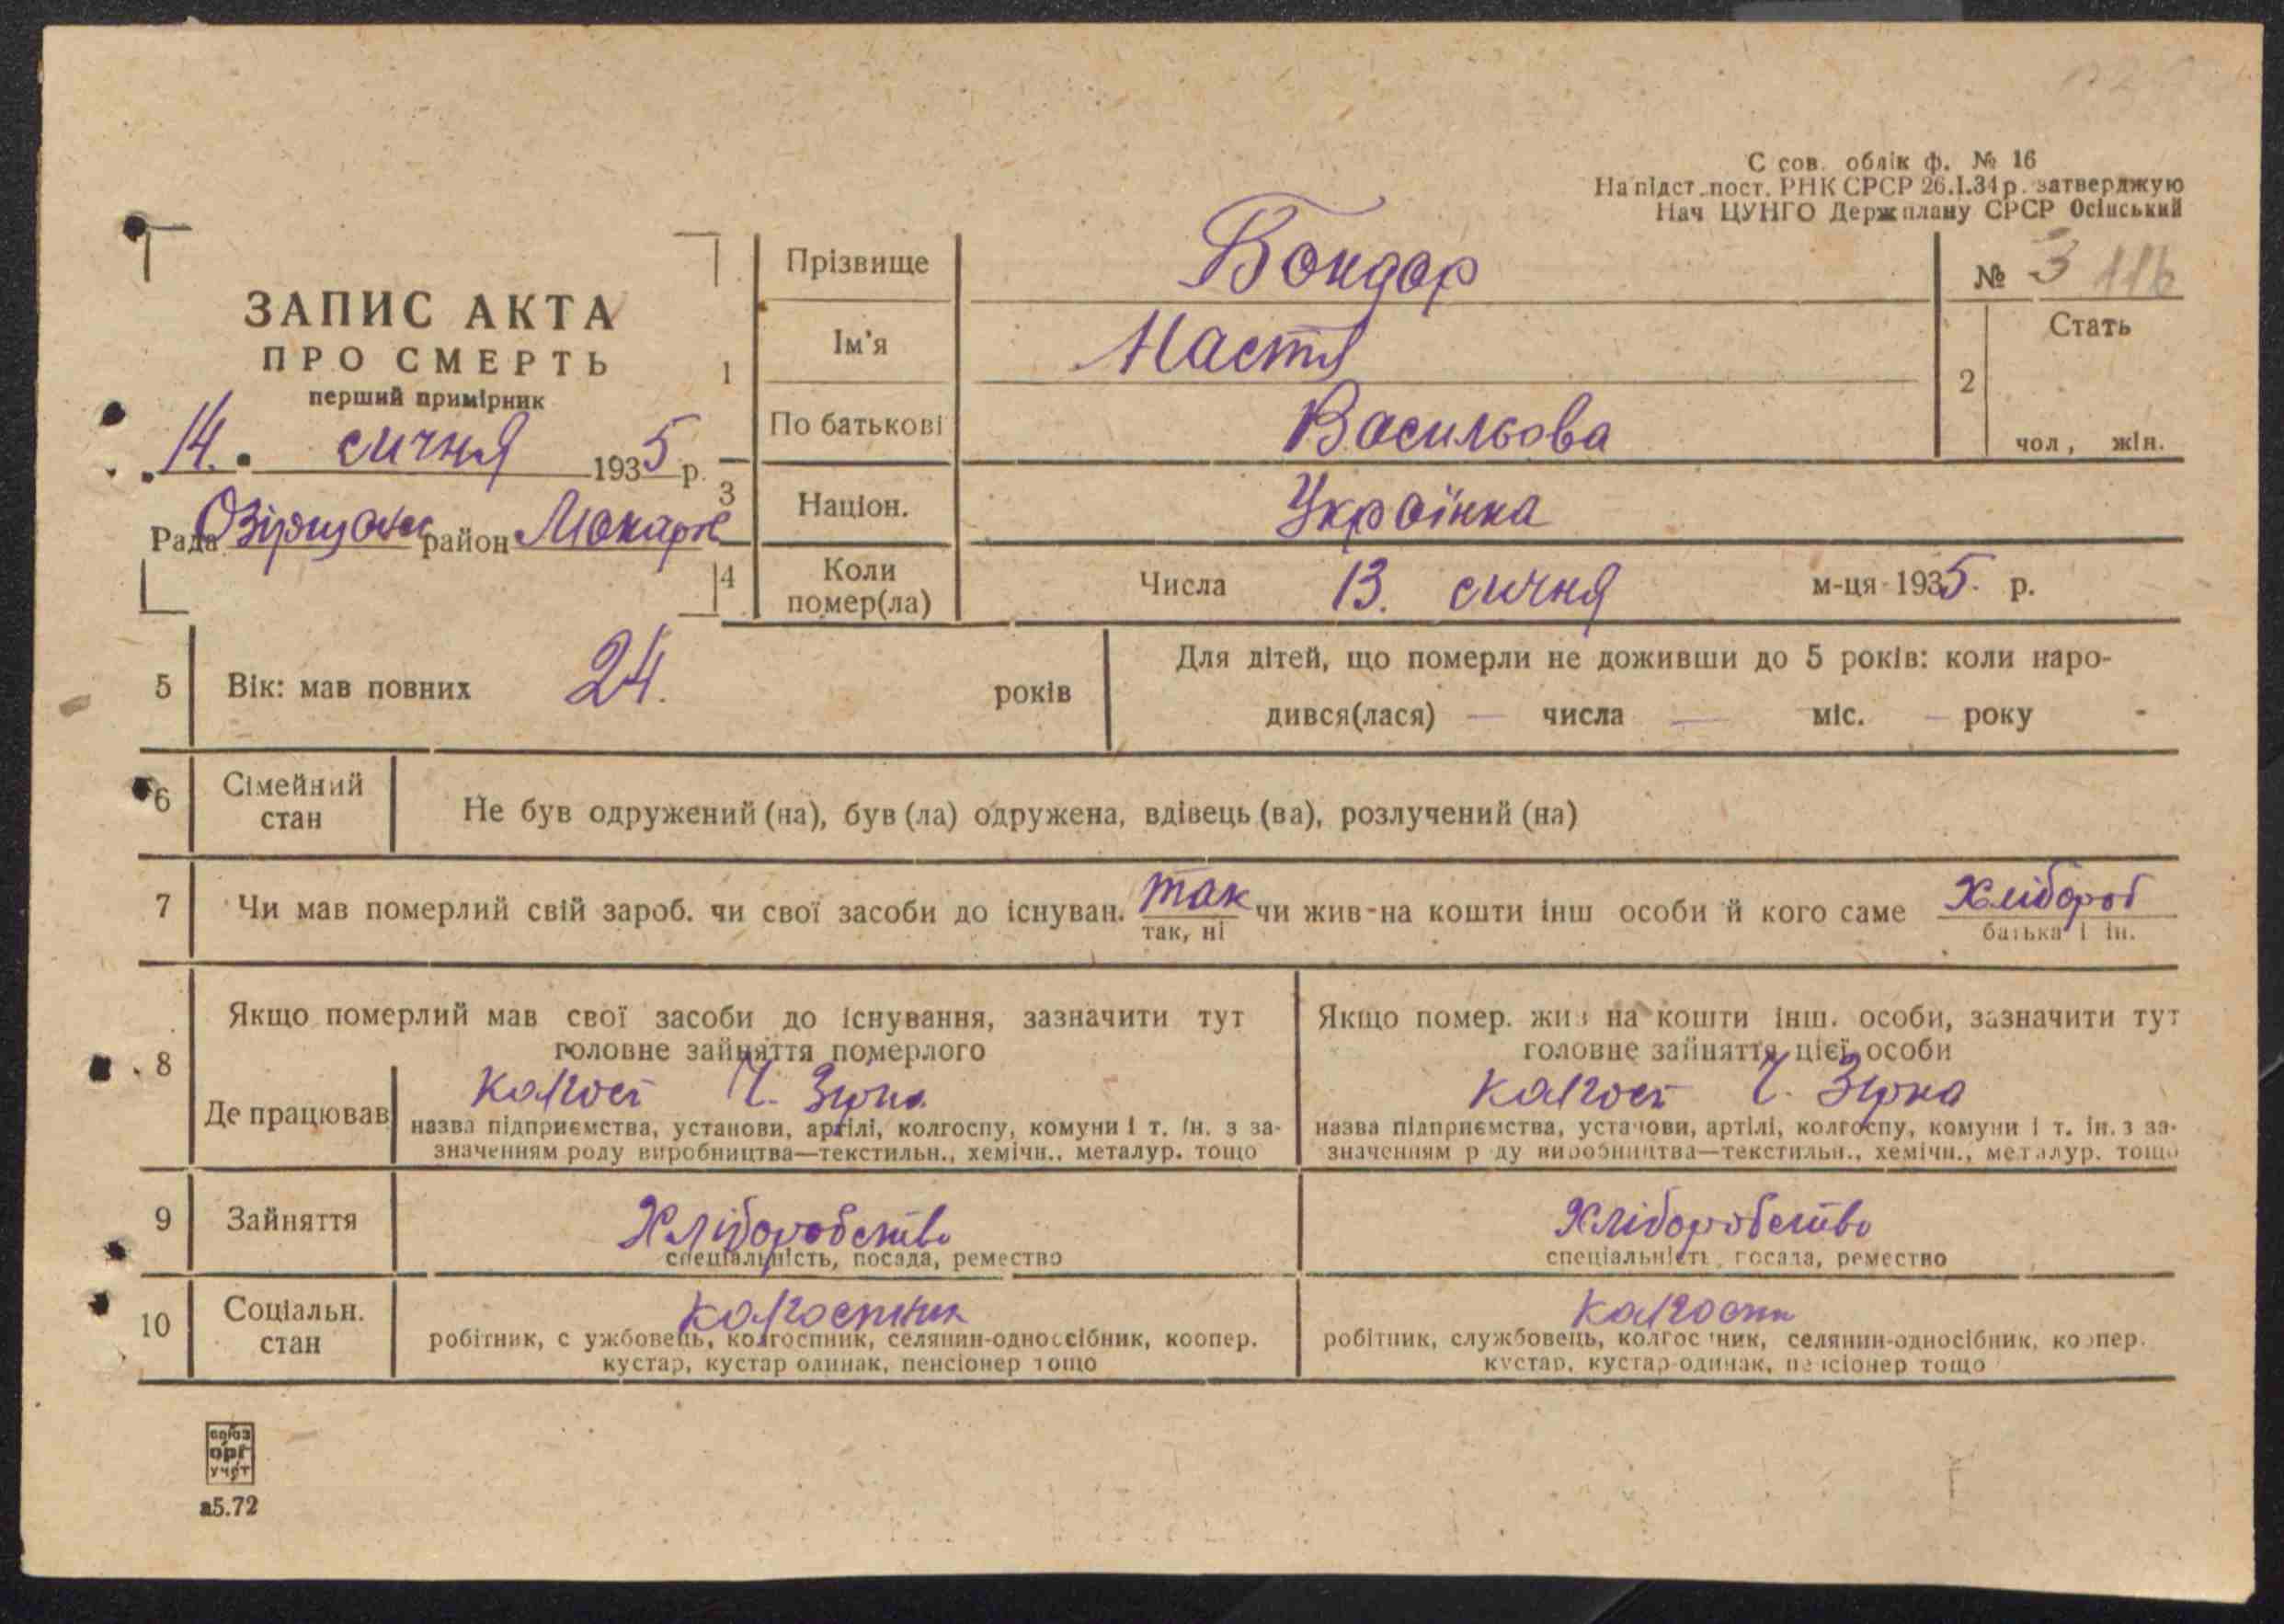 С сов. облік ф. № 16
На підст. пост. РНК СРСР 26.I.34 р. затверджую
Нач ЦУНГО Держплану СРСР Осінський
ЗАПИС АКТА
ПРО СМЕРТЬ
перший примірник
14. січня 1935 р.
Рада район Макарів
1
Прізвище Бондар
Ім'я Настя
По батькові Васильова
№ 3 116
2 Стать
чол, жін.
3 Націон. Українка
4 Коли помер(ла)
Числа 13. січня м-ця 1935. р.
5 Вік: мав повних 24. років
Для дітей, що померли не доживши до 5 років: коли наро-
дився(лася) — числа — міс. — року -
6 Сімейний стан
Не був одружений (на), був (ла) одружена, вдівець (ва), розлучений (на)
7 Чи мав померлий свій зароб. чи свої засоби до існуван. так чи жив-на кошти інш особи й кого саме Хлібороб
так, ні
батька і ін.
8 Якщо померлий мав свої засоби до існування, зазначити тут
головне зайняття померлого
Де працював
Колгосп Ч. Зірка
назва підприємства, установи, артілі, колгоспу, комуни і т. ін. з за-
значенням роду виробництва—текстильн., хемічн., металур. тощо
Якщо помер. жив на кошти інш. особи, зазначити тут
головне зайняття цієї особи
Колгосп Ч. Зірка
назва підприємства, установи, артілі, колгоспу, комуни і т. ін. з за-
значенням р ду виробництва—текстильн., хемічн., металур. тощо
9 Зайняття
Хліборобство
спеціальність, посада, ремество
Хліборобство
спеціальність, посада, ремество
10 Соціальн. стан
Колгоспник
робітник, с ужбовець, колгоспник, селянин-односсібник, коопер.
кустар, кустар одинак, пенсіонер тощо
Колгоспн
робітник, службовець, колгос ник, селянин-односібник, коопер.
кустар, кустар-одинак, пенсіонер тощо
союз
орг
учёт
а5.72